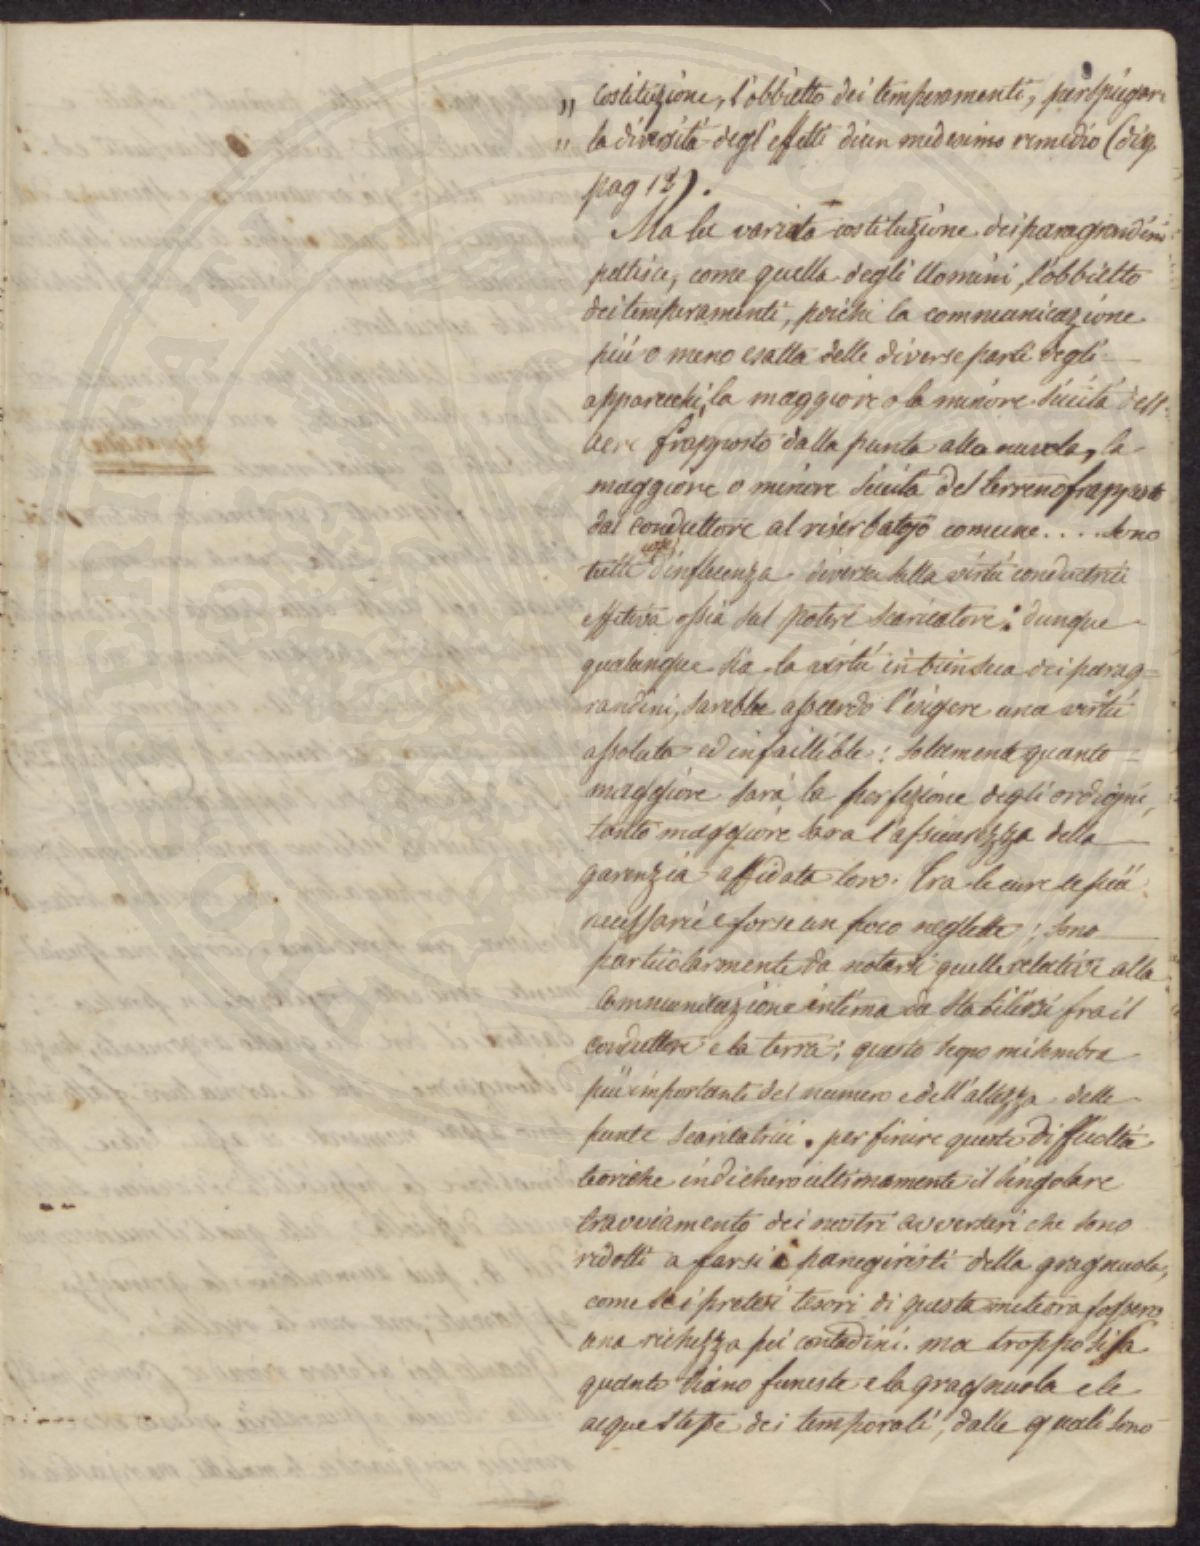 „ costituzione, l'obbietto dei temperamenti, per ispiegar
„ la diversità degl'effetti di un medesimo remedio (disp.
pag 12).
Ma la variata costituzione dei paragrandini
pattisce, come quella degli Uomini, l'obbietto
dei temperamenti, poichè la communicazione
più o meno esatta delle diverse parti degli
apparecchi, la maggiore o la minore siccità dell'
aere frapposto dalla punta alla nuvola, la
maggiore o minore siccità del terreno frapposto
dal conduttore al riserbatojo comune.... sono
tutte cose d'influenza diversa sulla virtù conduttrice
effettiva ossia sul potere scaricatore: dunque
qualunque sia la virtù intrinseca dei parag=
randini, sarebbe assurdo l'esigere una virtù
assoluta ed infallible: solamente quanto =
maggiore sarà la perfezione degli ordigni,
tanto maggiore sara l'assicurezza della
garenzia affidata loro. Tra le cure le più
necessarie e forse un poco neglette; sono
particolarmente da notarsi quelle relative alla
communicazione intima da stabilirsi fra il
conduttore e la terra; questo scopo mi sembra
più importante del numero e dell'altezza delle
punte scaricatrici. per finire queste difficoltà
teoriche indicherò ultimamente il singolare
travviamento dei nostri avverseri che sono
ridotti a farsi i panegiristi della gragnuola,
come se i pretesi tesori di questa meteora fossero
una richezza pei contadini. ma troppo si sa
quanto siano funeste e la gragnuola e le
acque stesse dei temporali, dalle quali sono